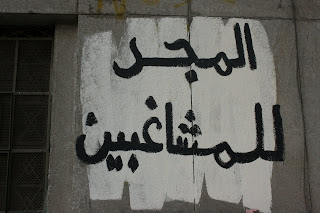 المجد
للمشاغبين